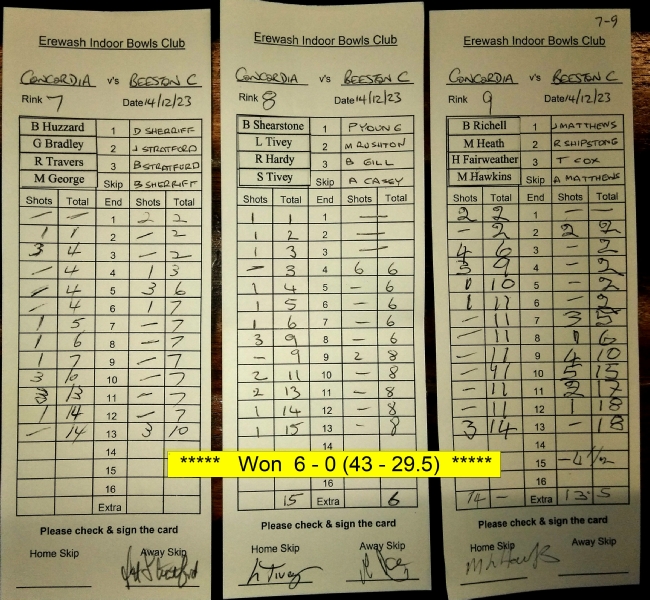 Erewash Indoor Bowls Club
CONCORDIA v's BEESTON C
Rink 7 Date 14/12/23
B Huzzard 1 D SHERRIFF
G Bradley 2 J STRATFORD
R Travers 3 B STRATFORD
M George Skip B SHERRIFF
Shots Total End Shots Total
— — 1 2 2
1 1 2 — 2
3 4 3 — 2
— 4 4 1 3
— 4 5 3 6
— 4 6 1 7
1 5 7 — 7
1 6 8 — 7
1 7 9 — 7
3 10 10 — 7
3 13 11 — 7
1 14 12 — 7
— 14 13 3 10
14
15
16
Extra
Please check & sign the card
Home Skip Away Skip
Erewash Indoor Bowls Club
CONCORDIA v's BEESTON C
Rink 8 Date 14/12/23
B Shearstone 1 P YOUNG
L Tivey 2 M RUSHTON
R Hardy 3 B GILL
S Tivey Skip A CASEY
Shots Total End Shots Total
1 1 1 —
1 2 2 —
1 3 3 —
— 3 4 6 6
1 4 5 — 6
1 5 6 — 6
1 6 7 — 6
3 9 8 — 6
— 9 9 2 8
2 11 10 — 8
2 13 11 — 8
1 14 12 — 8
1 15 13 — 8
14
***** Won 6 - 0 (43 - 29.5) *****
16
15 Extra 6
Please check & sign the card
Home Skip Away Skip
L Tivey
7-9
Erewash Indoor Bowls Club
CONCORDIA v's BEESTON C
Rink 9 Date 14/12/23
B Richell 1 J MATTHEWS
M Heath 2 R SHIPSTONE
H Fairweather 3 T COX
M Hawkins Skip A MATTHEWS
Shots Total End Shots Total
2 2 1 — —
— 2 2 2 2
4 6 3 — 2
3 9 4 — 2
1 10 5 — 2
1 11 6 — 2
— 11 7 3 5
— 11 8 1 6
— 11 9 4 10
— 11 10 5 15
— 11 11 2 17
— 11 12 1 18
3 14 13 — 18
14
15 —4 1/2
16
14 — Extra 13.5
Please check & sign the card
Home Skip Away Skip